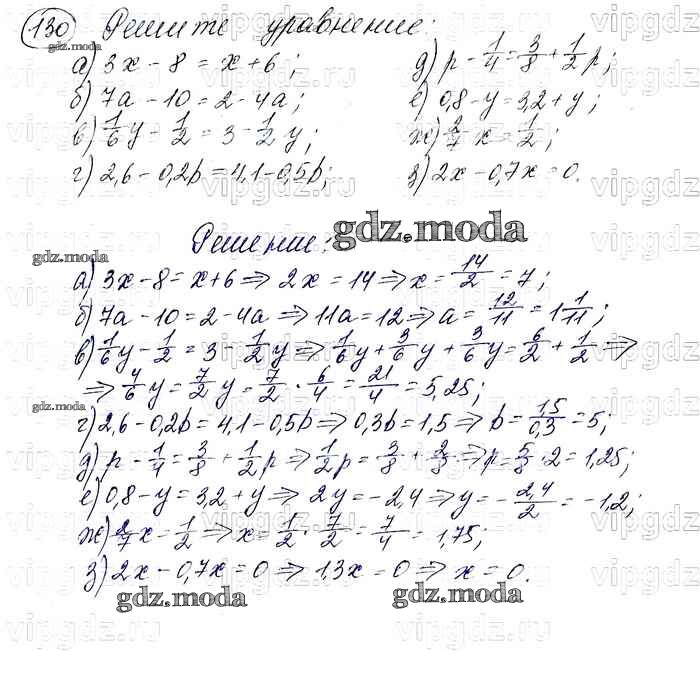 130 Решите уравнение:
а) 3x - 8 = x + 6;
б) 7a - 10 = 2 - 4a;
в) 1/6 y - 1/2 = 3 - 1/2 y;
г) 2,6 - 0,2b = 4,1 - 0,5b;
д) p - 1/4 = 3/8 + 1/2 p;
е) 0,8 - y = 3,2 + y;
ж) 2/7 x = 1/2;
з) 2x - 0,7x = 0.
Решение:
gdz.moda
gdz.moda
а) 3x - 8 = x + 6 ⇒ 2x = 14 ⇒ x = 14/2 = 7;
б) 7a - 10 = 2 - 4a ⇒ 11a = 12 ⇒ a = 12/11 = 1 1/11;
в) 1/6 y - 1/2 = 3 - 1/2 y ⇒ 1/6 y + 3/6 y + 3/6 y = 6/2 + 1/2 ⇒
⇒ 4/6 y = 7/2 y = 7/2 · 6/4 = 21/4 = 5,25;
gdz.moda
г) 2,6 - 0,2b = 4,1 - 0,5b ⇒ 0,3b = 1,5 ⇒ b = 1,5/0,3 = 5;
д) p - 1/4 = 3/8 + 1/2 p ⇒ 1/2 p = 3/8 + 2/8 ⇒ p = 5/8 · 2 = 1,25;
е) 0,8 - y = 3,2 + y ⇒ 2y = -2,4 ⇒ y = - 2,4/2 = -1,2;
ж) 2/7 x = 1/2 ⇒ x = 1/2 · 7/2 = 7/4 = 1,75;
з) 2x - 0,7x = 0 ⇒ 1,3x = 0 ⇒ x = 0.
gdz.moda
gdz.moda
gdz.moda
vipgdz